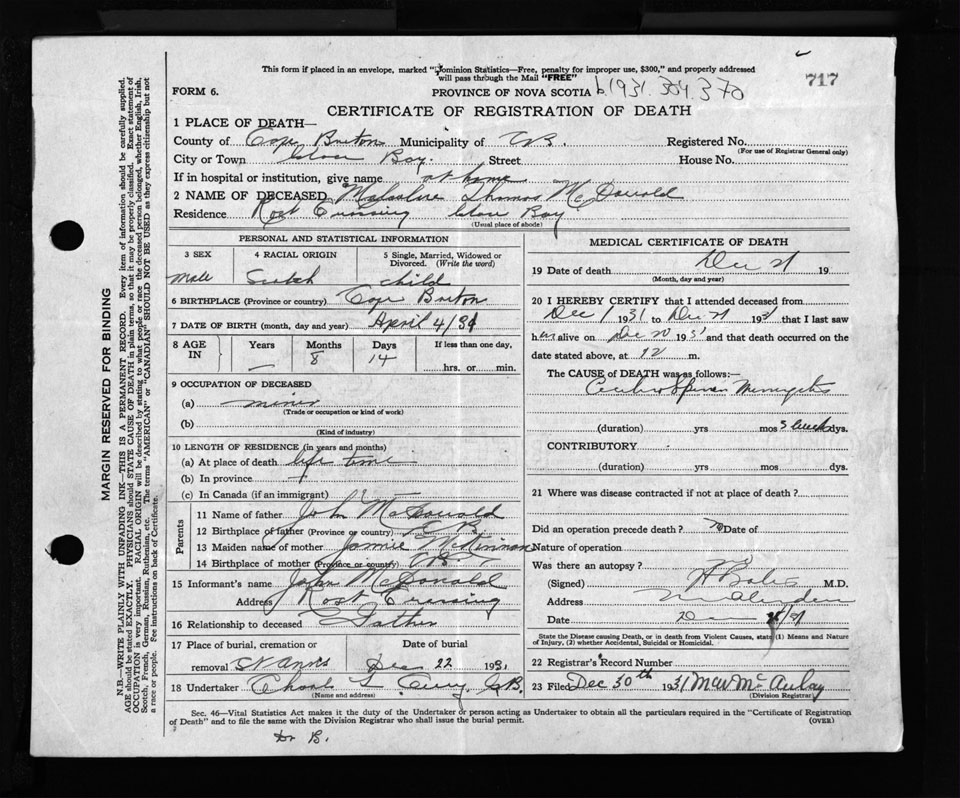 717
This form if placed in an envelope, marked "Dominion Statistics—Free, penalty for improper use, $300," and properly addressed
will pass through the Mail "FREE"
FORM 6. PROVINCE OF NOVA SCOTIA b1931.304370
CERTIFICATE OF REGISTRATION OF DEATH
1 PLACE OF DEATH—
County of Cape Breton Municipality of C.B. Registered No.
(For use of Registrar General only)
City or Town Glace Bay. Street House No.
If in hospital or institution, give name at home
2 NAME OF DECEASED Thomas McDonald
Residence Crossing Glace Bay
(Usual place of abode)
PERSONAL AND STATISTICAL INFORMATION
3 SEX 4 RACIAL ORIGIN 5 Single, Married, Widowed or Divorced. (Write the word)
Male Scotch child
6 BIRTHPLACE (Province or country) Cape Breton
7 DATE OF BIRTH (month, day and year) April 4/31
8 AGE IN Years Months Days If less than one day,
— 8 14 hrs. or min.
9 OCCUPATION OF DECEASED
(a) minor
(Trade or occupation or kind of work)
(b)
(Kind of industry)
10 LENGTH OF RESIDENCE (in years and months)
(a) At place of death life time
(b) In province
(c) In Canada (if an immigrant)
Parents
11 Name of father John McDonald
12 Birthplace of father (Province or country) C.B.
13 Maiden name of mother McKinnon
14 Birthplace of mother (Province or country) C.B.
15 Informant's name John McDonald
Address Crossing
16 Relationship to deceased Father
17 Place of burial, cremation or removal St Anns Date of burial Dec 22 1931
18 Undertaker Curry, G.B.
(Name and address)
MEDICAL CERTIFICATE OF DEATH
19 Date of death Dec 21 19
(Month, day and year)
20 I HEREBY CERTIFY that I attended deceased from
Dec 1 1931 to Dec 21 1931 that I last saw
him alive on Dec 20 1931 and that death occurred on the
date stated above, at 12 m.
The CAUSE of DEATH was as follows:—
Cerebro Spinal Meningitis
(duration) yrs mos 3 weeks dys.
CONTRIBUTORY
(duration) yrs mos dys.
21 Where was disease contracted if not at place of death?
Did an operation precede death? no Date of
Nature of operation
Was there an autopsy?
(Signed) M.D.
Address
Date Dec /31
State the Disease causing Death, or in death from Violent Causes, state (1) Means and Nature
of Injury, (2) whether Accidental, Suicidal or Homicidal.
22 Registrar's Record Number
23 Filed Dec 30th 1931 McAulay
(Division Registrar)
Sec. 46—Vital Statistics Act makes it the duty of the Undertaker or person acting as Undertaker to obtain all the particulars required in the "Certificate of Registration
of Death" and to file the same with the Division Registrar who shall issue the burial permit. (OVER)
Dr B.
MARGIN RESERVED FOR BINDING
N.B.—WRITE PLAINLY WITH UNFADING INK—THIS IS A PERMANENT RECORD. Every item of information should be carefully supplied.
AGE should be stated EXACTLY. PHYSICIANS should STATE CAUSE OF DEATH in plain terms, so that it may be properly classified. Exact statement of
OCCUPATION is very important. RACIAL ORIGIN will be described by stating to what people or race the deceased person belonged, whether English, Irish,
Scotch, French, German, Russian, Ruthenian, etc. The terms "AMERICAN" or "CANADIAN" SHOULD NOT BE USED as they express citizenship but not
a race or people. See instructions on back of Certificate.